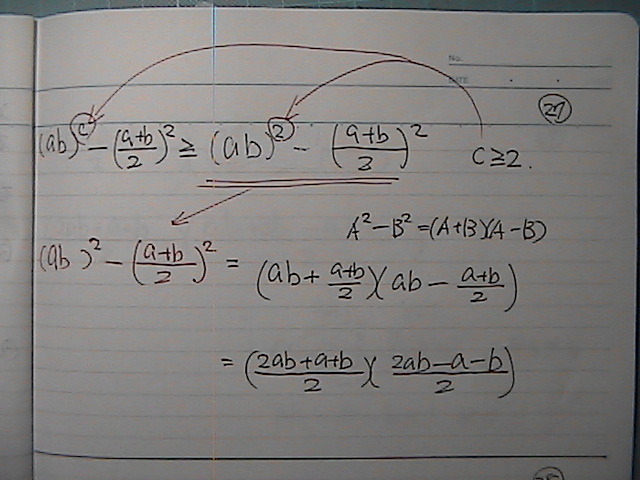 No.
DATE . .
(27)
(ab)^c - ((a+b)/2)^2 ≥ (ab)^2 - ((a+b)/2)^2 c≧2.
A^2-B^2=(A+B)(A-B)
(ab)^2 - ((a+b)/2)^2 = (ab + (a+b)/2)(ab - (a+b)/2)
= ((2ab+a+b)/2)((2ab-a-b)/2)